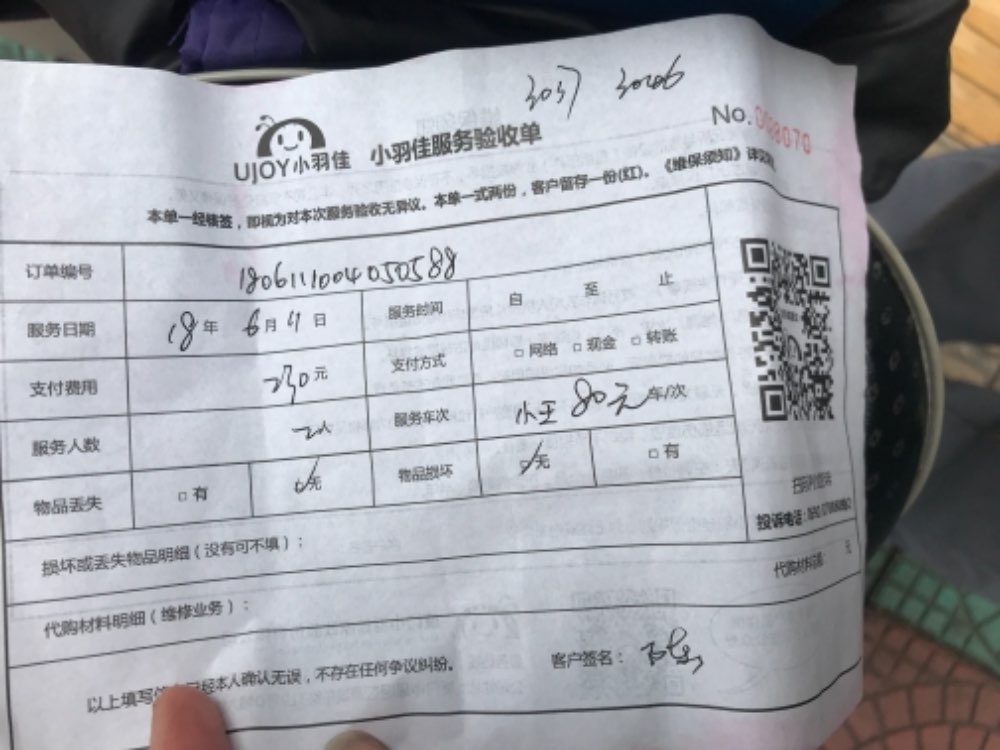 3037 30206
UJOY小羽佳 小羽佳服务验收单 No.
本单一经核签，即视为对本次服务验收无异议。本单一式两份，客户留存一份(红)。《维保须知》详见
订单编号 1806111004050588
服务日期 18年 6月11日 服务时间 自 至 止
支付费用 230元 支付方式 □网络 □现金 □转账
服务人数 二人 服务车次 小王 80元 车/次
物品丢失 □有 □无 物品损坏 □无 □有
投诉电话：
损坏或丢失物品明细（没有可不填）：
代购材料明细（维修业务）： 代购材料 元
以上填写 经本人确认无误，不存在任何争议纠纷。 客户签名：